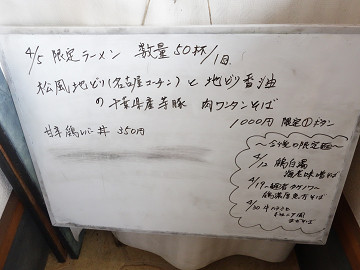 4/5 限定ラーメン 数量50杯/1日
松風地どり(名古屋コーチン)と地どり香油
の千葉県産芋豚 肉ワンタンそば
1000円 限定①ボタン
甘辛鶏レバー丼 350円
～今後の限定麺～
4/12 鶏白湯
海老味噌そば
4/19
鶏濃厚魚介そば
4/30